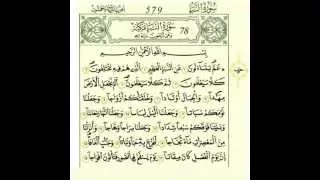 سُورَةُ النَّبَإِ
579
سُورَةُ النَّبَإِ مَكِّيَّة
78
بِسْمِ اللَّهِ الرَّحْمَنِ الرَّحِيمِ
عَمَّ يَتَسَاءَلُونَ عَنِ النَّبَإِ الْعَظِيمِ الَّذِي هُمْ فِيهِ مُخْتَلِفُونَ
كَلَّا سَيَعْلَمُونَ ثُمَّ كَلَّا سَيَعْلَمُونَ أَلَمْ نَجْعَلِ الْأَرْضَ
مِهَادًا وَالْجِبَالَ أَوْتَادًا وَخَلَقْنَاكُمْ أَزْوَاجًا وَجَعَلْنَا
نَوْمَكُمْ سُبَاتًا وَجَعَلْنَا اللَّيْلَ لِبَاسًا وَجَعَلْنَا النَّهَارَ مَعَاشًا
وَبَنَيْنَا فَوْقَكُمْ سَبْعًا شِدَادًا وَجَعَلْنَا سِرَاجًا وَهَّاجًا وَأَنْزَلْنَا
مِنَ الْمُعْصِرَاتِ مَاءً ثَجَّاجًا لِنُخْرِجَ بِهِ حَبًّا وَنَبَاتًا وَجَنَّاتٍ أَلْفَافًا
إِنَّ يَوْمَ الْفَصْلِ كَانَ مِيقَاتًا يَوْمَ يُنْفَخُ فِي الصُّورِ فَتَأْتُونَ أَفْوَاجًا